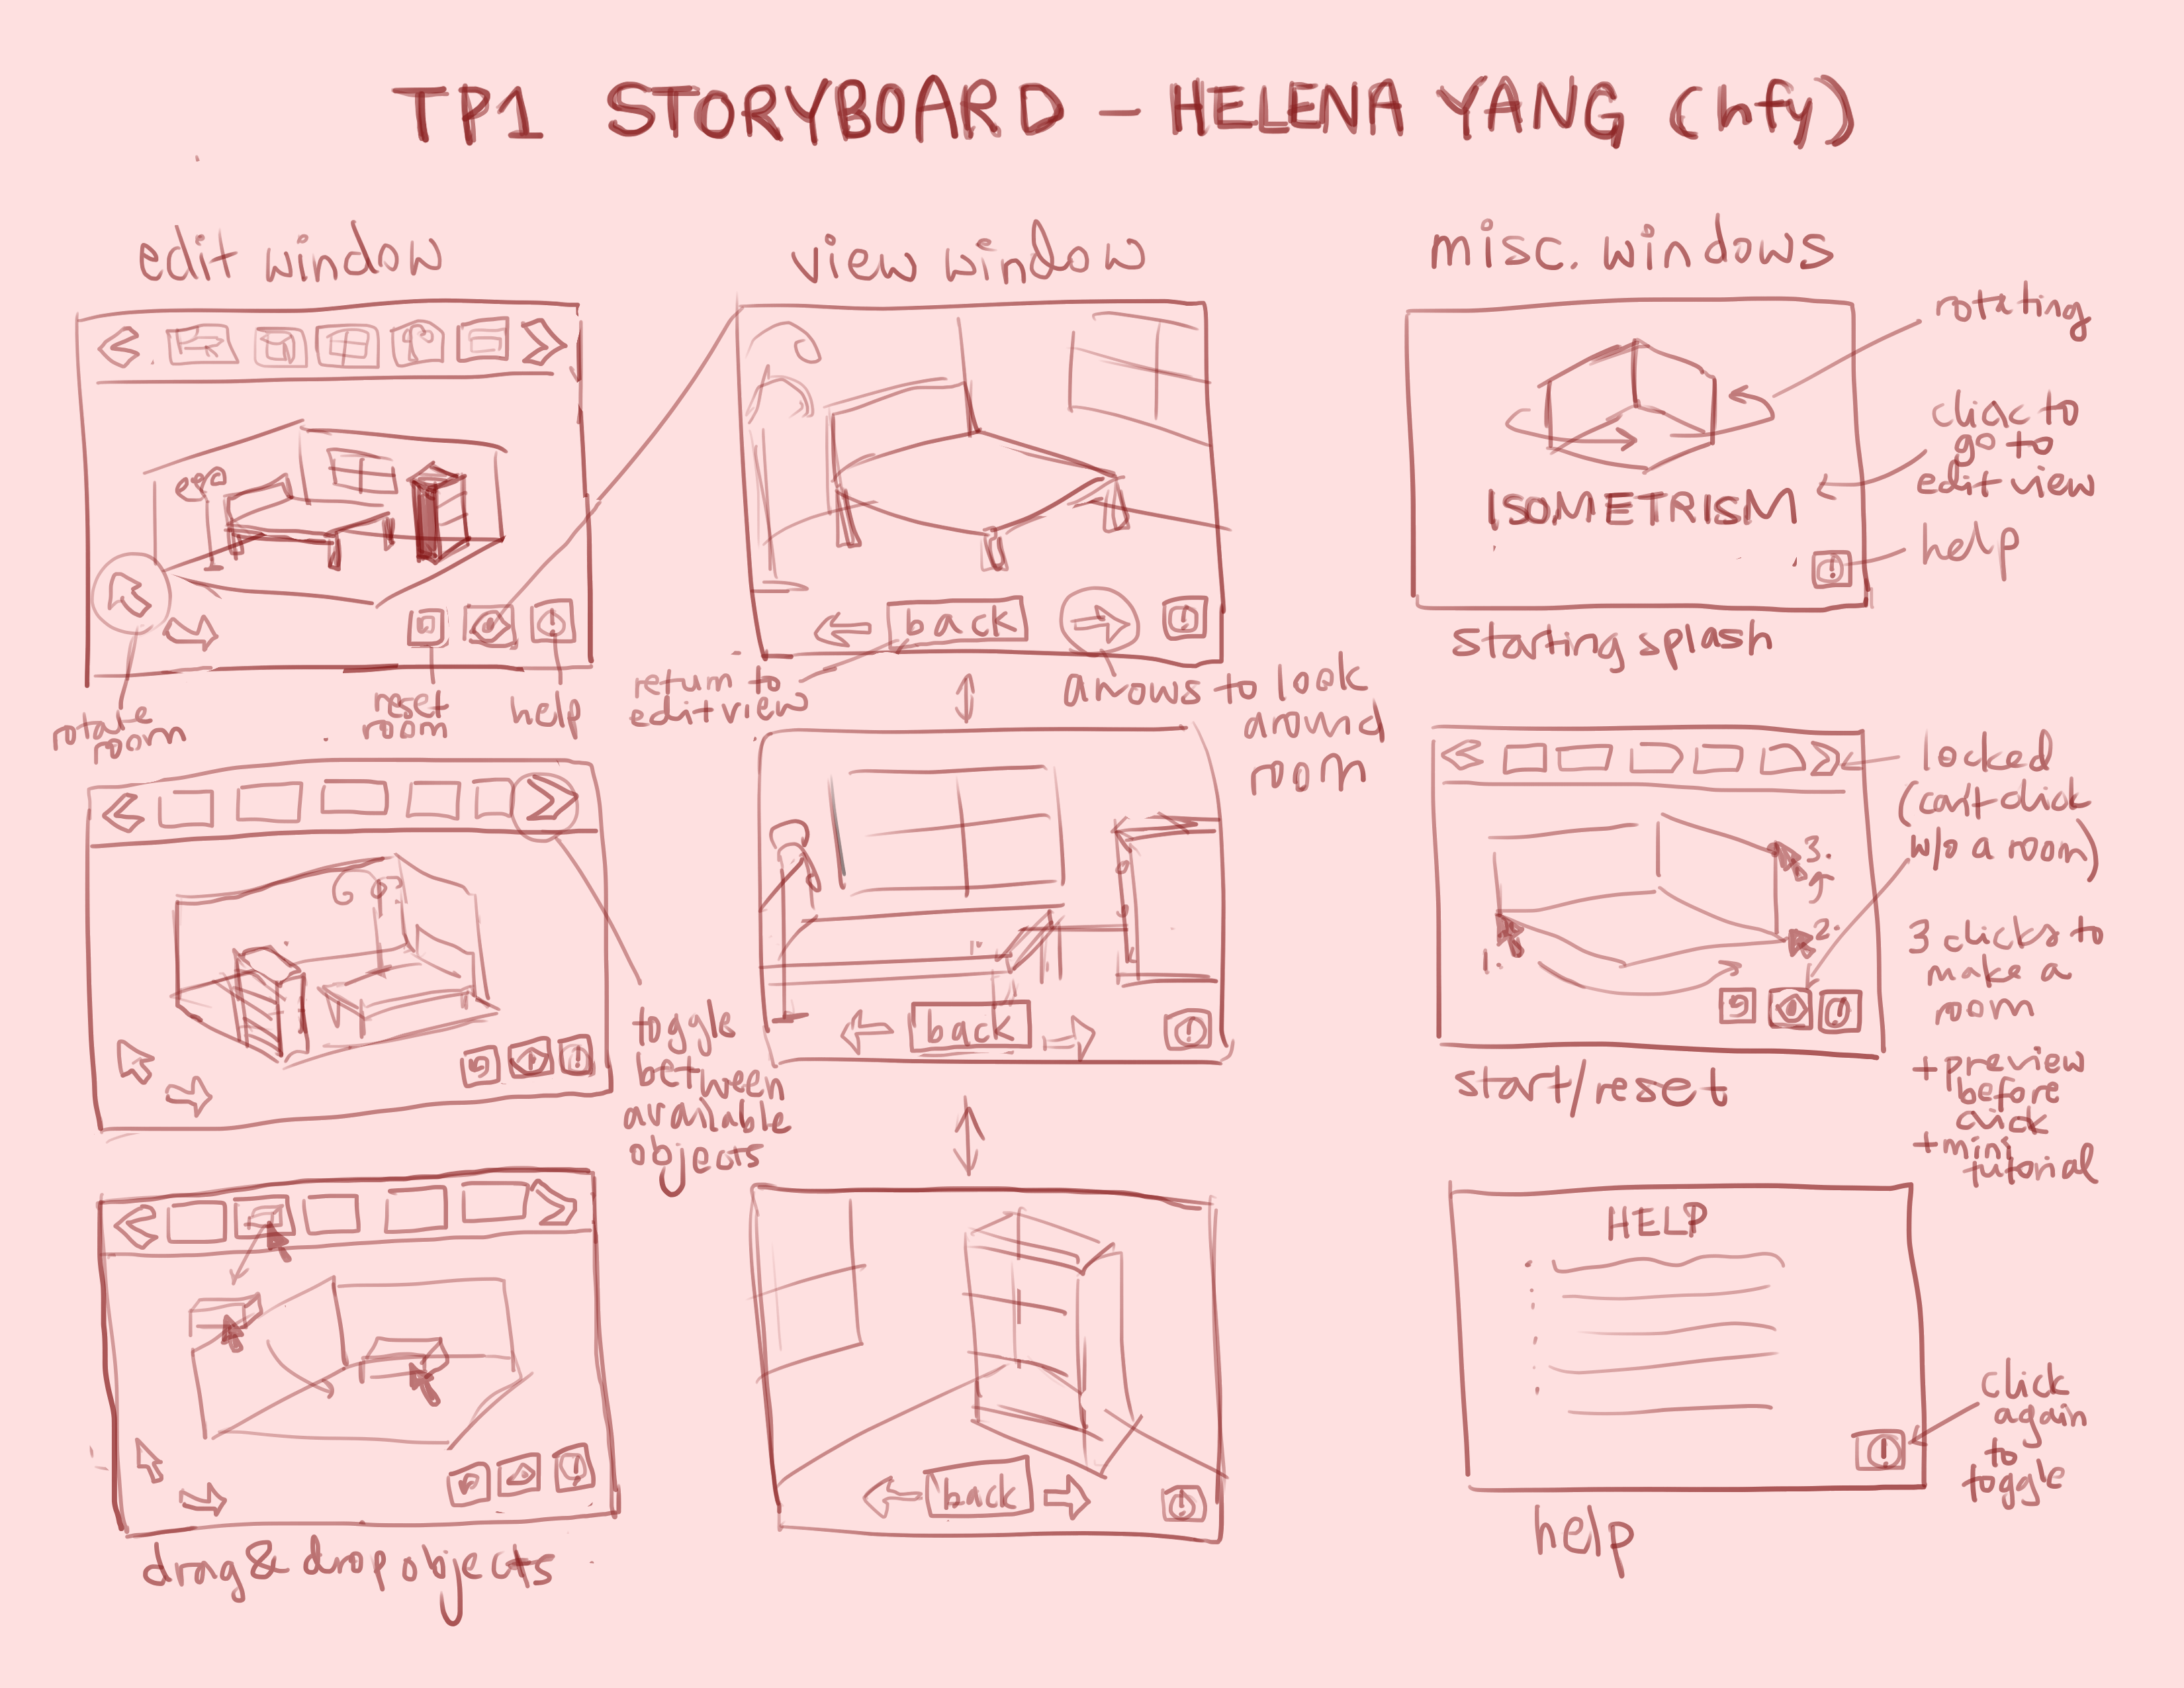 TP1 STORYBOARD - HELENA YANG (hfy)
edit window
rotate
room
reset
room
help
toggle
between
available
objects
drag & drop objects
view window
back
return to
edit view
arrows to look
around
room
back
back
misc. windows
rotating
click to
go to
edit view
ISOMETRISM
help
starting splash
locked
(can't click
w/o a room)
1.
2.
3.
3 clicks to
make a
room
+ preview
before
click
+ mini
tutorial
start/reset
HELP
click
again
to
toggle
help